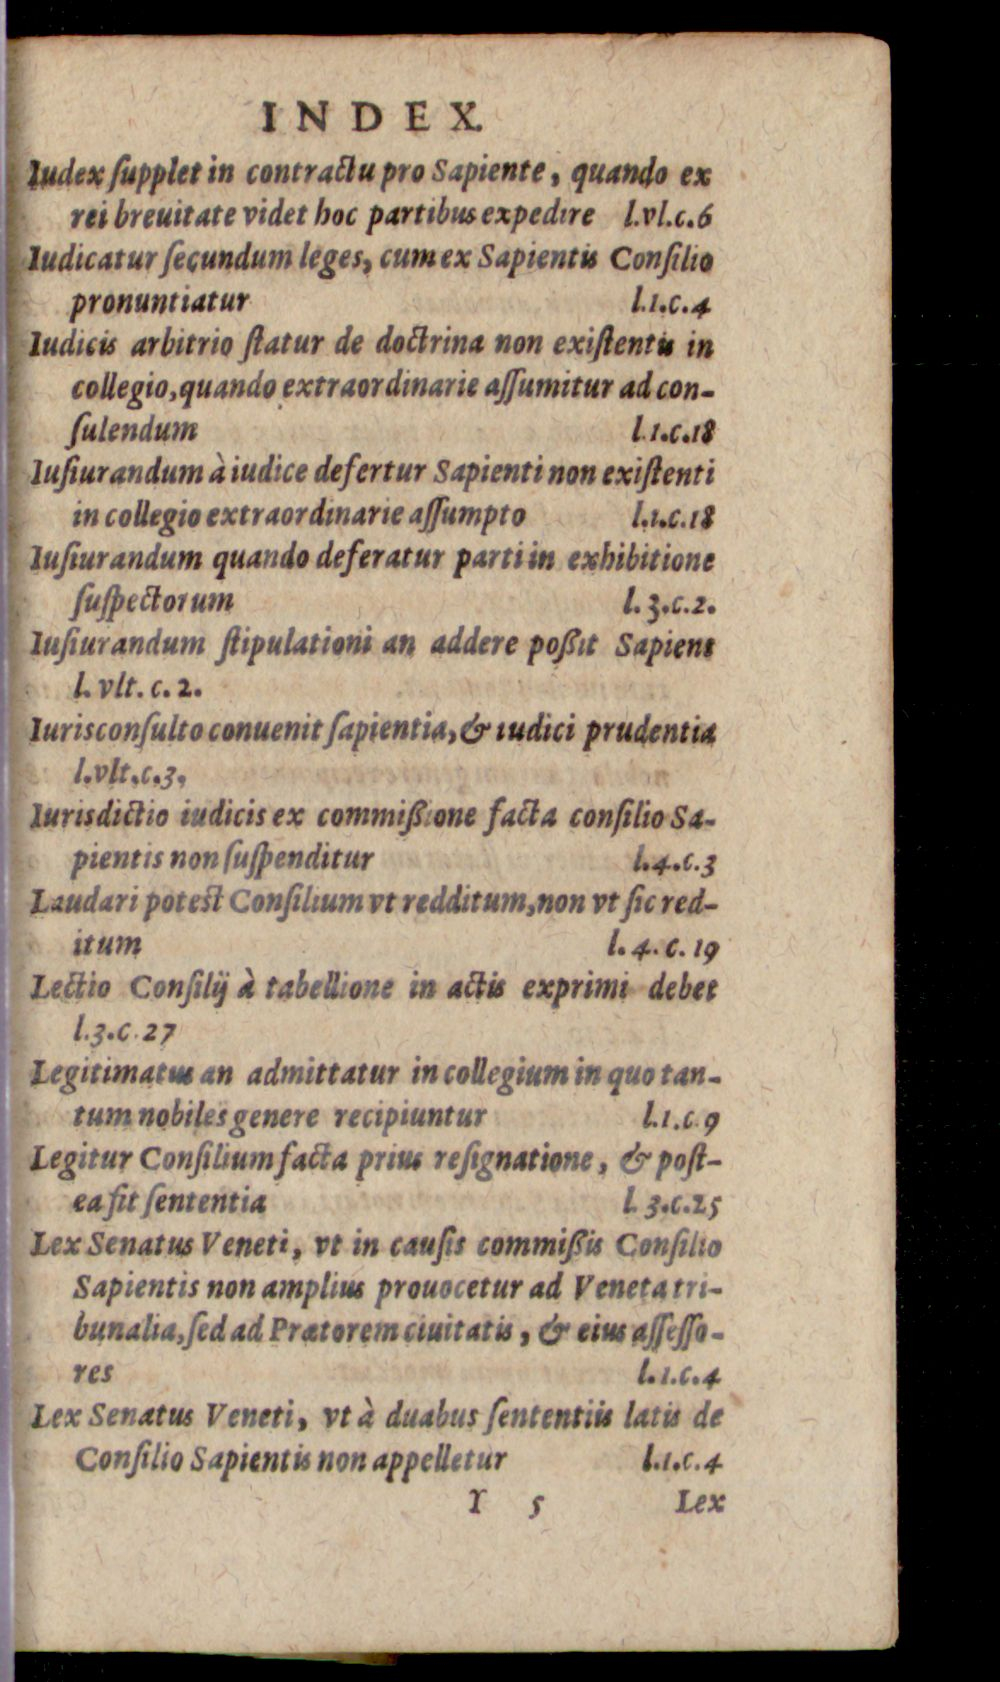 INDEX.
Iudex ſupplet in contractu pro Sapiente, quando ex
rei breuitate videt hoc partibus expedire l.vl.c.6
Iudicatur ſecundum leges, cum ex Sapientis Conſilio
pronuntiatur l.1.c.4
Iudicis arbitrio ſtatur de doctrina non exiſtentis in
collegio, quando extraordinarie aſſumitur ad con-
ſulendum l.1.c.18
Iuſiurandum à iudice defertur Sapienti non exiſtenti
in collegio extraordinarie aſſumpto l.1.c.18
Iuſiurandum quando deferatur parti in exhibitione
ſuſpectorum l.3.c.2.
Iuſiurandum ſtipulationi an addere poßit Sapiens
l. vlt. c. 2.
Iurisconſulto conuenit ſapientia, & iudici prudentia
l.vlt.c.3.
Iurisdictio iudicis ex commißione facta conſilio Sa-
pientis non ſuſpenditur l.4.c.3
Laudari poteſt Conſilium vt redditum, non vt ſic red-
itum l. 4. c. 19
Lectio Conſilij à tabellione in actis exprimi debet
l.3.c.27
Legitimatus an admittatur in collegium in quo tan-
tum nobiles genere recipiuntur l.1.c.9
Legitur Conſilium facta prius reſignatione, & poſt-
ea fit ſententia l. 3.c.25
Lex Senatus Veneti, vt in cauſis commißis Conſilio
Sapientis non amplius prouocetur ad Veneta tri-
bunalia, ſed ad Prætorem ciuitatis, & eius aſſeſſo-
res l.1.c.4
Lex Senatus Veneti, vt à duabus ſententiis latis de
Conſilio Sapientis non appelletur l.1.c.4
Y 5 Lex